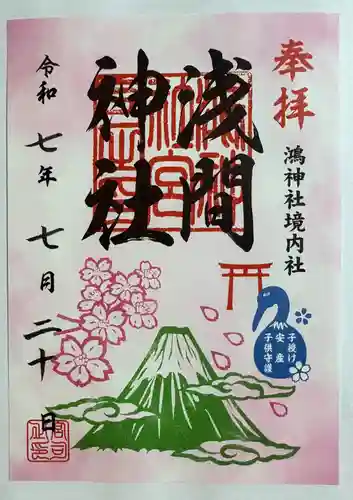 奉拝
鴻神社境内社
浅間
神社
令和七年七月二十日
子授け
安産
子供守護